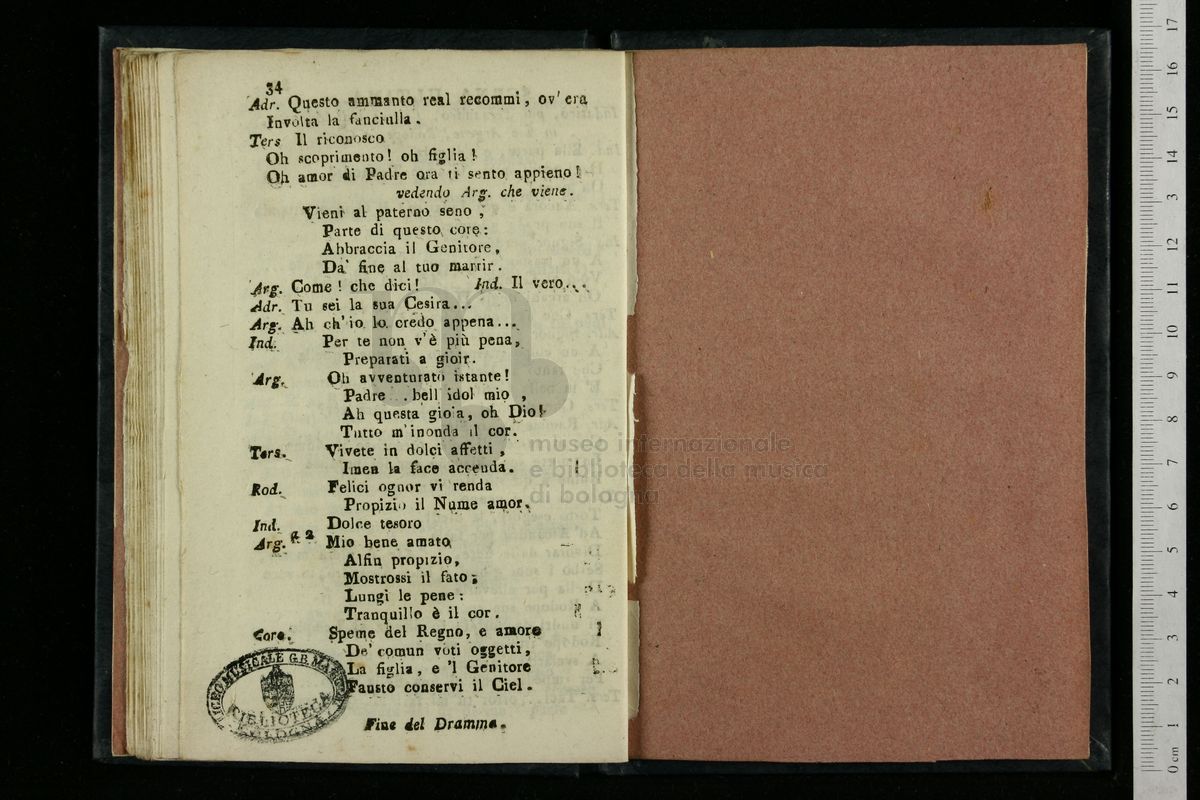 34
Adr. Questo ammanto real recommi, ov' era
Involta la fanciulla.
Ters Il riconosco
Oh scoprimento! oh figlia!
Oh amor di Padre ora ti sento appieno!
vedendo Arg. che viene.
Vieni al paterno seno,
Parte di questo core:
Abbraccia il Genitore,
Da' fine al tuo martir.
Arg. Come! che dici! Ind. Il vero...
Adr. Tu sei la sua Cesira...
Arg. Ah ch'io lo credo appena...
Ind. Per te non v'è più pena,
Preparati a gioir.
Arg. Oh avventurato istante!
Padre .. bell idol mio,
Ah questa gioia, oh Dio!
Tutto m'inonda il cor.
Ters. Vivete in dolci affetti,
Imen la face accenda.
Rod. Felici ognor vi renda
Propizio il Nume amor.
Ind. Dolce tesoro
Arg. a 2 Mio bene amato
Alfin propizio,
Mostrossi il fato;
Lungi le pene:
Tranquillo è il cor.
Coro. Speme del Regno, e amore
De' comun voti oggetti,
La figlia, e 'l Genitore
Fausto conservi il Ciel.
Fine del Dramma.
LICEO MUSICALE G.B. MARTINI
BIBLIOTECA
BOLOGNA
museo internazionale
e biblioteca della musica
di bologna
0 cm 1 2 3 4 5 6 7 8 9 10 11 12 13 14 15 16 17